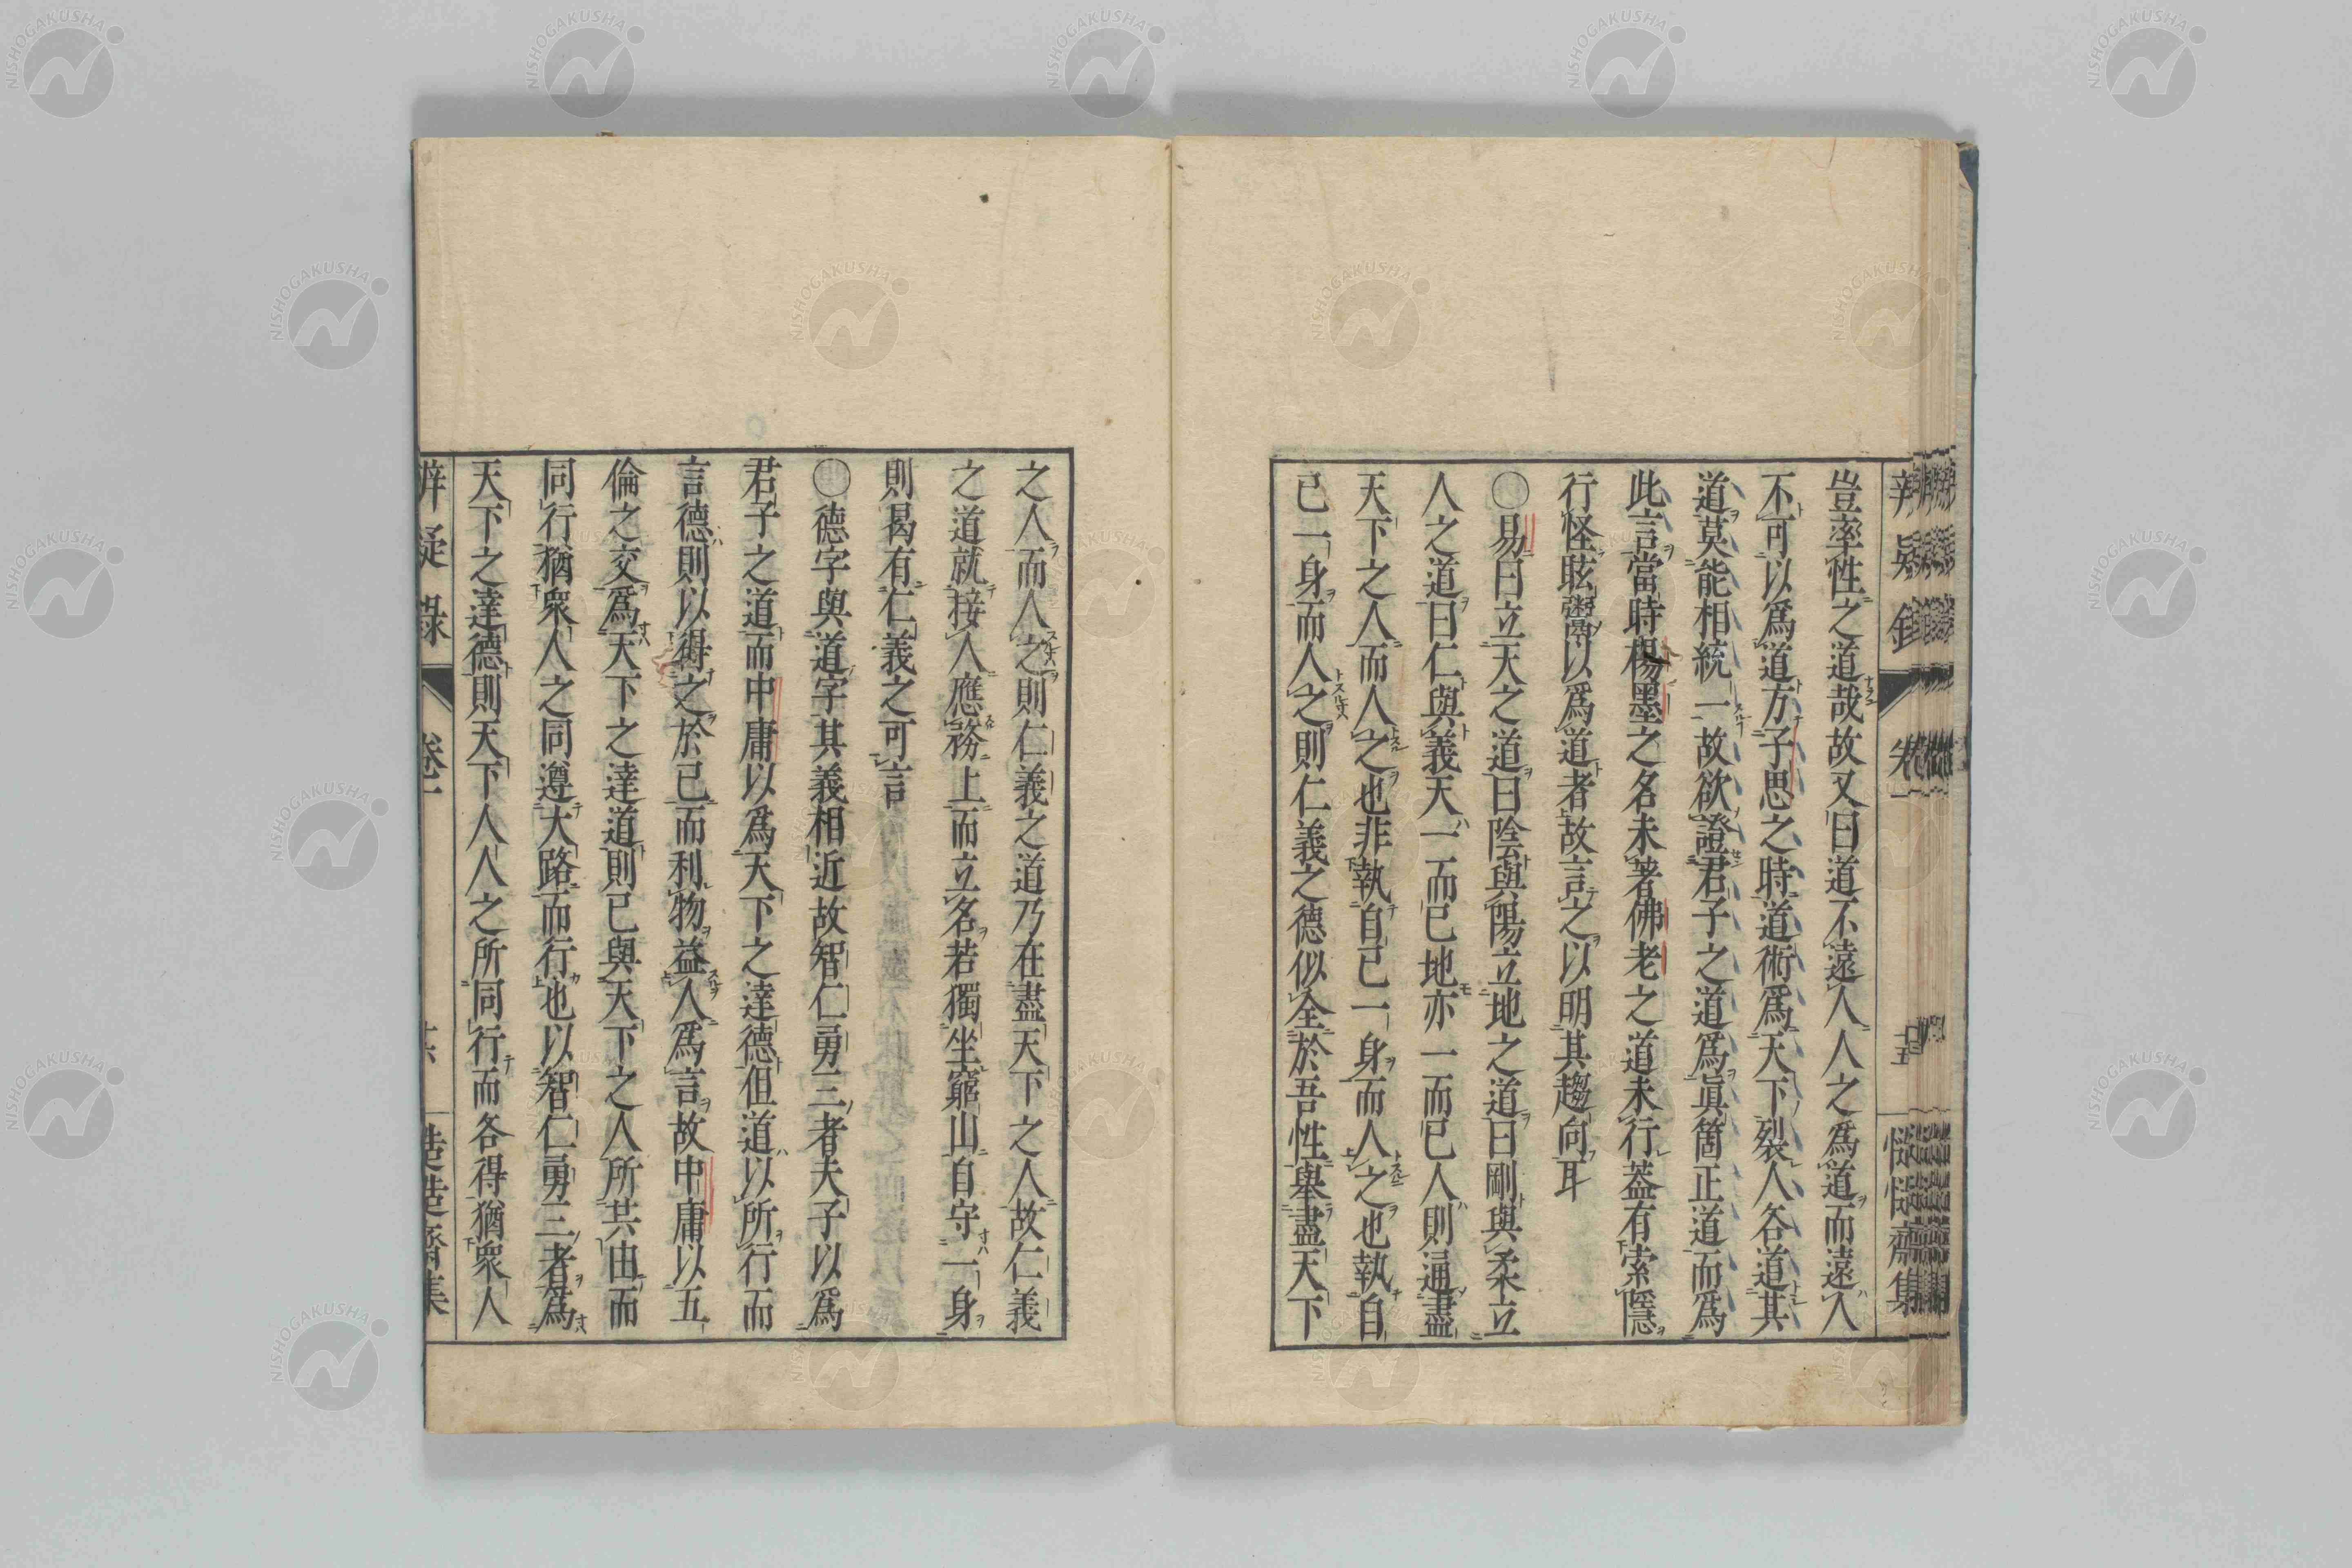 豈率性之道哉故又曰道不遠人人之爲道而遠人
不可以爲道方子思之時道術爲天下裂人各道其
道莫能相統一故欲證君子之道爲眞箇正道而爲
此言當時楊墨之名未著佛老之道未行蓋有索隱
行怪眩鬻以爲道者故言之以明其趨向耳
◯易曰立天之道曰陰與陽立地之道曰剛與柔立
人之道曰仁與義天一而已地亦一而已人則逼盡
天下之人而人之也非執自己一身而人之也執自
己一身而人之則仁義之德似全於吾性舉盡天下
之人而人之則仁義之道乃在盡天下之人故仁義
之道就接人應務上而立名若獨坐窮山自守一身
則曷有仁義之可言
◯德字與道字其義相近故智仁勇三者夫子以爲
君子之道而中庸以爲天下之達德但道以所行而
言德則以得之於己而利物益人爲言故中庸以五
倫之交爲天下之達道則已與天下之人所共由而
同行猶衆人之同遵大路而行也以智仁勇三者爲
天下之達德則天下人人之所同行而各得猶衆人
辨疑錄
卷一
NISHOGAKUSHA